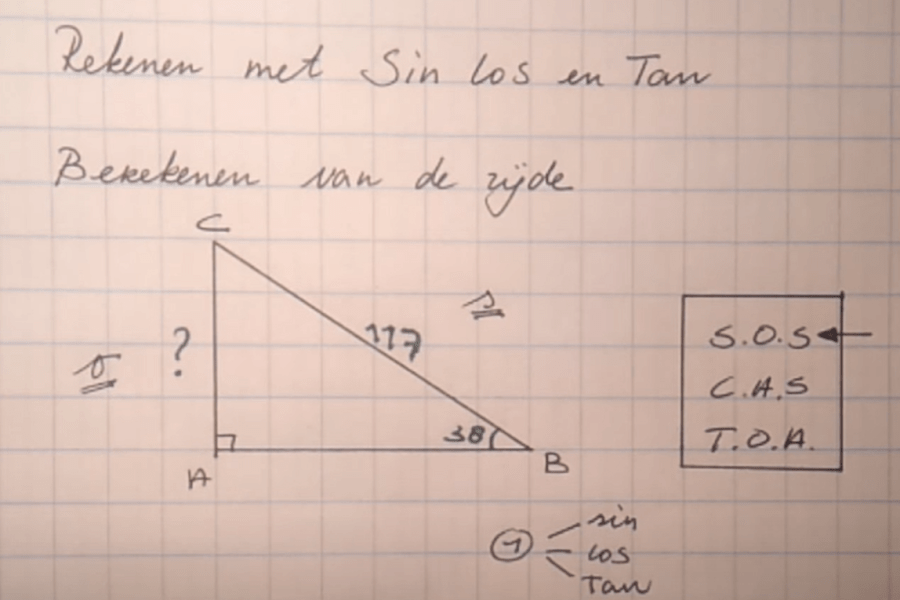 Rekenen met Sin Cos en Tan
Berekenen van de zijde
C
s
117
?
o
S.O.S
C.A.S
T.O.A.
38
A
B
1
sin
cos
Tan